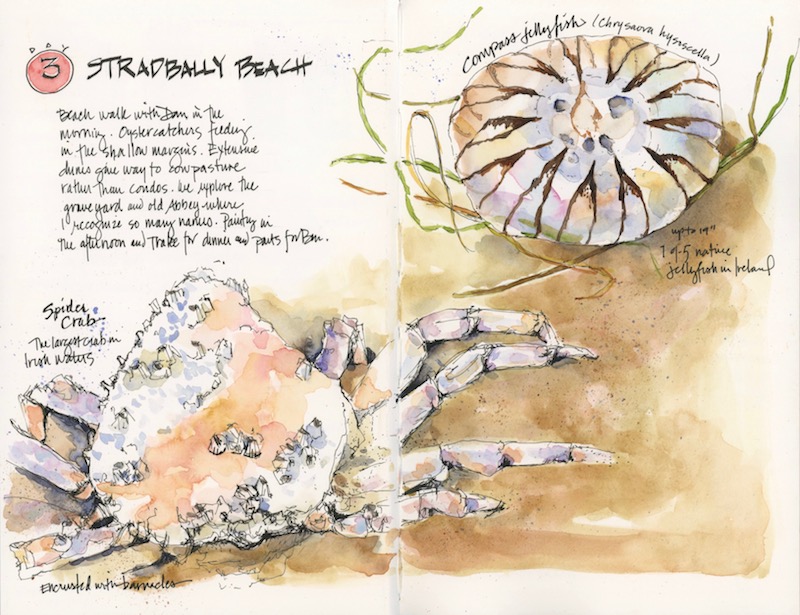 DAY
3 STRADBALLY BEACH
Beach walk with Dan in the
morning. Oystercatchers feeding
in the shallow margins. Extensive
dunes give way to cow pasture
rather than condos. We explore the
graveyard and old Abbey where
I recognize so many names. Painting in
the afternoon and Tralee for dinner and parts for Dan.
compass jellyfish (Chrysaora hysiscella)
up to 19"
1 of 5 native
jellyfish in Ireland
Spider
Crab
The largest crab in
Irish waters
Encrusted with barnacles